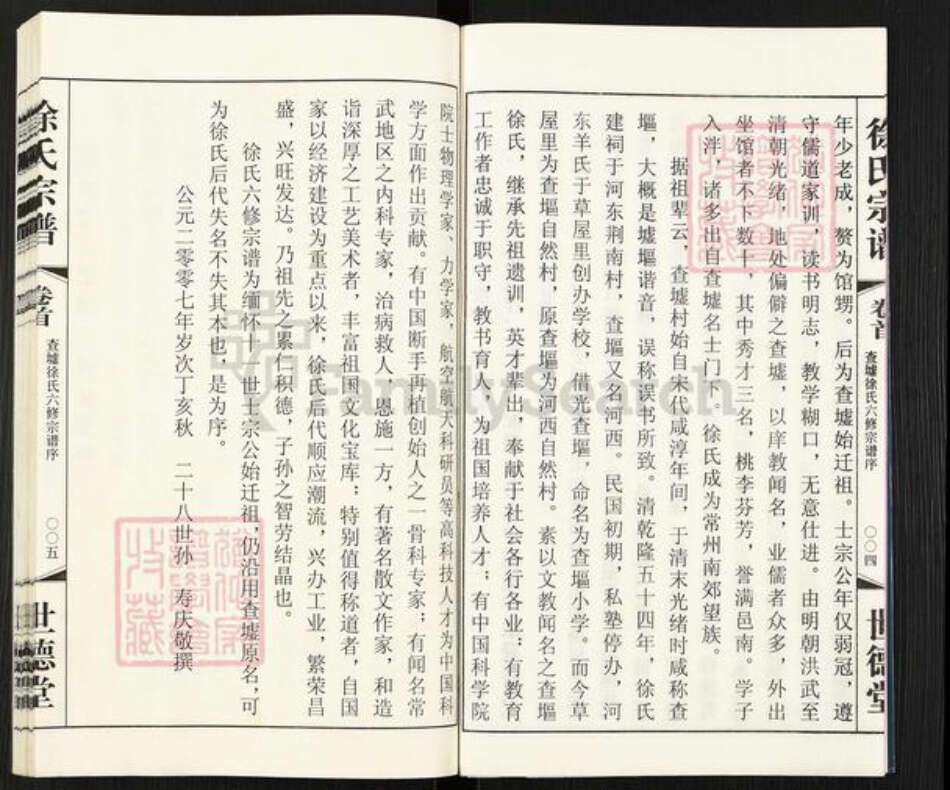 徐氏宗谱
卷首
查墟徐氏六修宗谱序
〇〇四
世德堂
年少老成，赘为馆甥。后为查墟始迁祖。士宗公年仅弱冠，遵
守儒道家训，读书明志，教学糊口，无意仕进。由明朝洪武至
清朝光绪，地处偏僻之查墟，以庠教闻名，业儒者众多，外出
坐馆者不下数十，其中秀才三名，桃李芬芳，誉满邑南。学子
入泮，诸多出自查墟名士门下。徐氏成为常州南郊望族。
据祖辈云，查墟村始自宋代咸淳年间，于清末光绪时咸称查
堰，大概是墟堰谐音，误称误书所致。清乾隆五十四年，徐氏
建祠于河东荆南村，查堰又名河西。民国初期，私塾停办，河
东羊氏于草屋里创办学校，借光查堰，命名为查堰小学。而今草
屋里为查堰自然村，原查堰为河西自然村。素以文教闻名之查堰
徐氏，继承先祖遗训，英才辈出，奉献于社会各行各业；有教育
工作者忠诚于职守，教书育人，为祖国培养人才；有中国科学院
院士物理学家、力学家，航空航天科研员等高科技人才为中国科
学方面作出贡献。有中国断手再植创始人之一骨科专家；有闻名常
武地区之内科专家，治病救人，恩施一方，有著名散文作家，和造
诣深厚之工艺美术者，丰富祖国文化宝库；特别值得称道者，自国
家以经济建设为重点以来，徐氏后代顺应潮流，兴办工业，繁荣昌
盛，兴旺发达。乃祖先之累仁积德，子孙之智劳结晶也。
徐氏六修宗谱为缅怀十一世士宗公始迁祖，仍沿用查墟原名，可
为徐氏后代失名不失其本也，是为序。
公元二零零七年岁次丁亥秋　二十八世孙　寿庆敬撰
徐氏宗谱
卷首
查墟徐氏六修宗谱序
〇〇五
世德堂
FamilySearch